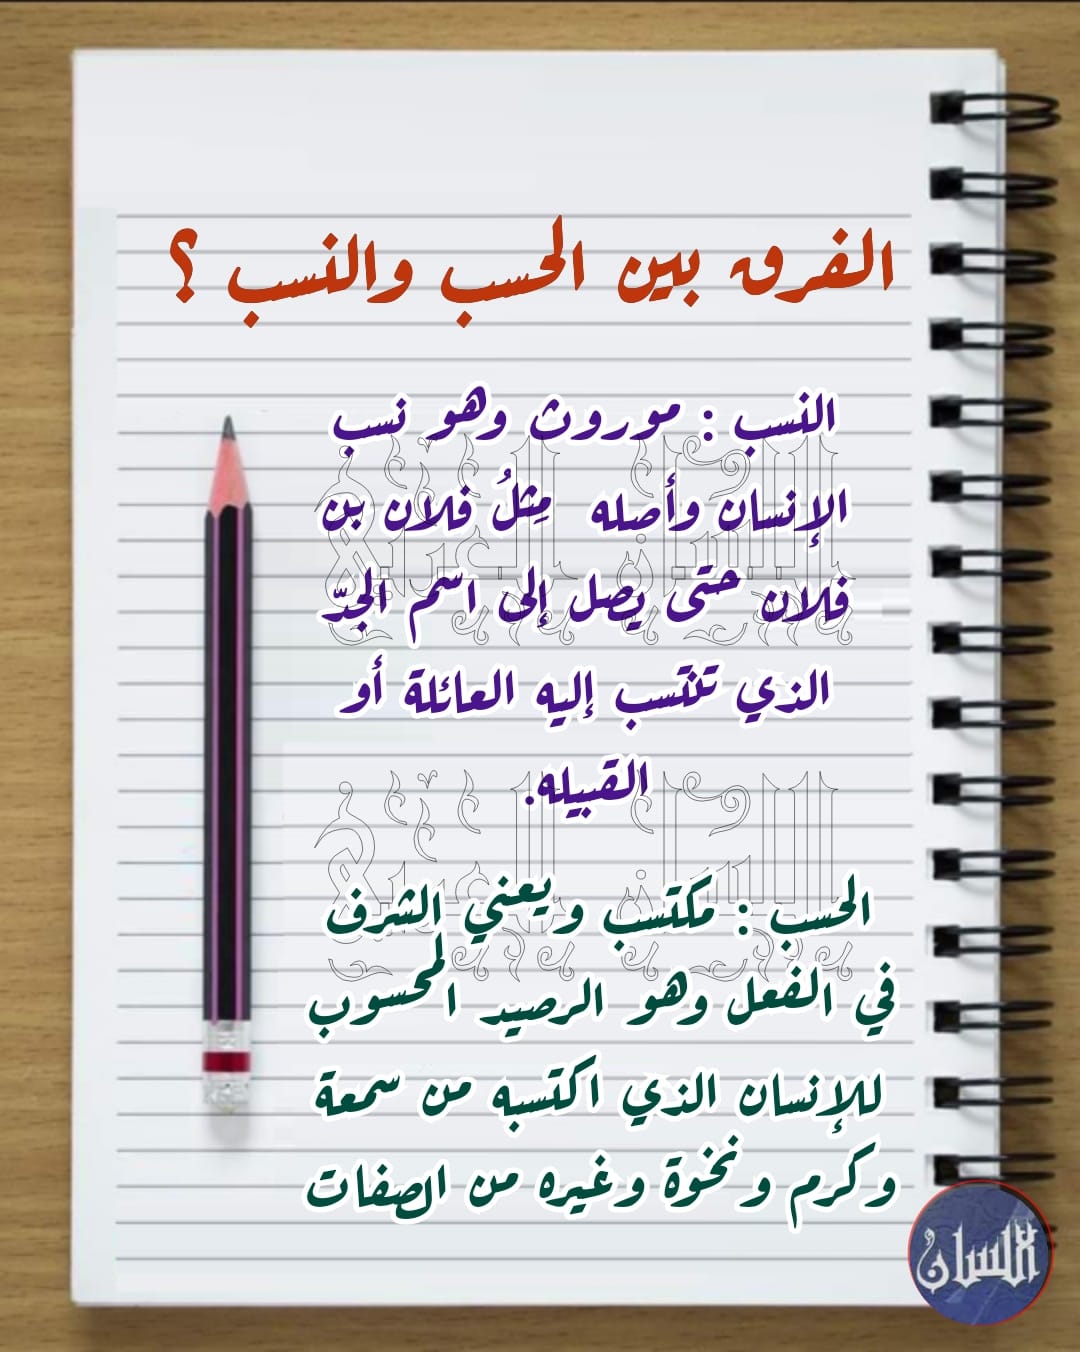 الفرق بين الحسب والنسب ؟
النسب : موروث وهو نسب
الإنسان وأصله مِثلُ فلان بن
فلان حتى يصل إلى اسم الجدّ
الذي تنتسب إليه العائلة أو
القبيله.
الحسب : مكتسب ويعني الشرف
في الفعل وهو الرصيد المحسوب
للإنسان الذي اكتسبه من سمعة
وكرم ونخوة وغيره من الصفات